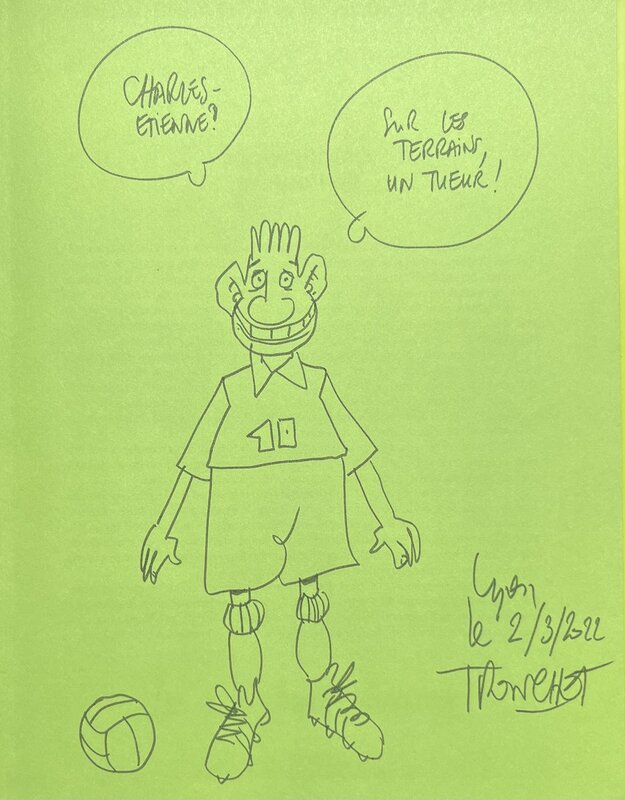 CHARLES-
ETIENNE?
SUR LES
TERRAINS,
UN TUEUR !
10
Lyon
le 2/3/2022
TRONCHET